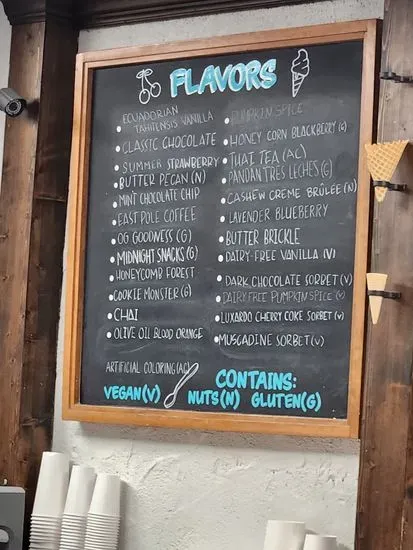 FLAVORS
ECUADORIAN
TAHITENSIS VANILLA
CLASSIC CHOCOLATE
SUMMER STRAWBERRY
BUTTER PECAN (N)
MINT CHOCOLATE CHIP
EAST POLE COFFEE
OG GOODNESS (G)
MIDNIGHT SNACKS (G)
HONEYCOMB FOREST
COOKIE MONSTER (G)
CHAI
OLIVE OIL BLOOD ORANGE
PUMPKIN SPICE
HONEY CORN BLACKBERRY (G)
THAI TEA (AC)
PANDAN TRES LECHES (G)
CASHEW CREME BRÛLÉE (N)
LAVENDER BLUEBERRY
BUTTER BRICKLE
DAIRY-FREE VANILLA (V)
DARK CHOCOLATE SORBET (V)
DAIRY FREE PUMPKIN SPICE (V)
LUXARDO CHERRY COKE SORBET (V)
MUSCADINE SORBET (V)
ARTIFICIAL COLORING (AC)
VEGAN (V)
CONTAINS:
NUTS (N) GLUTEN (G)